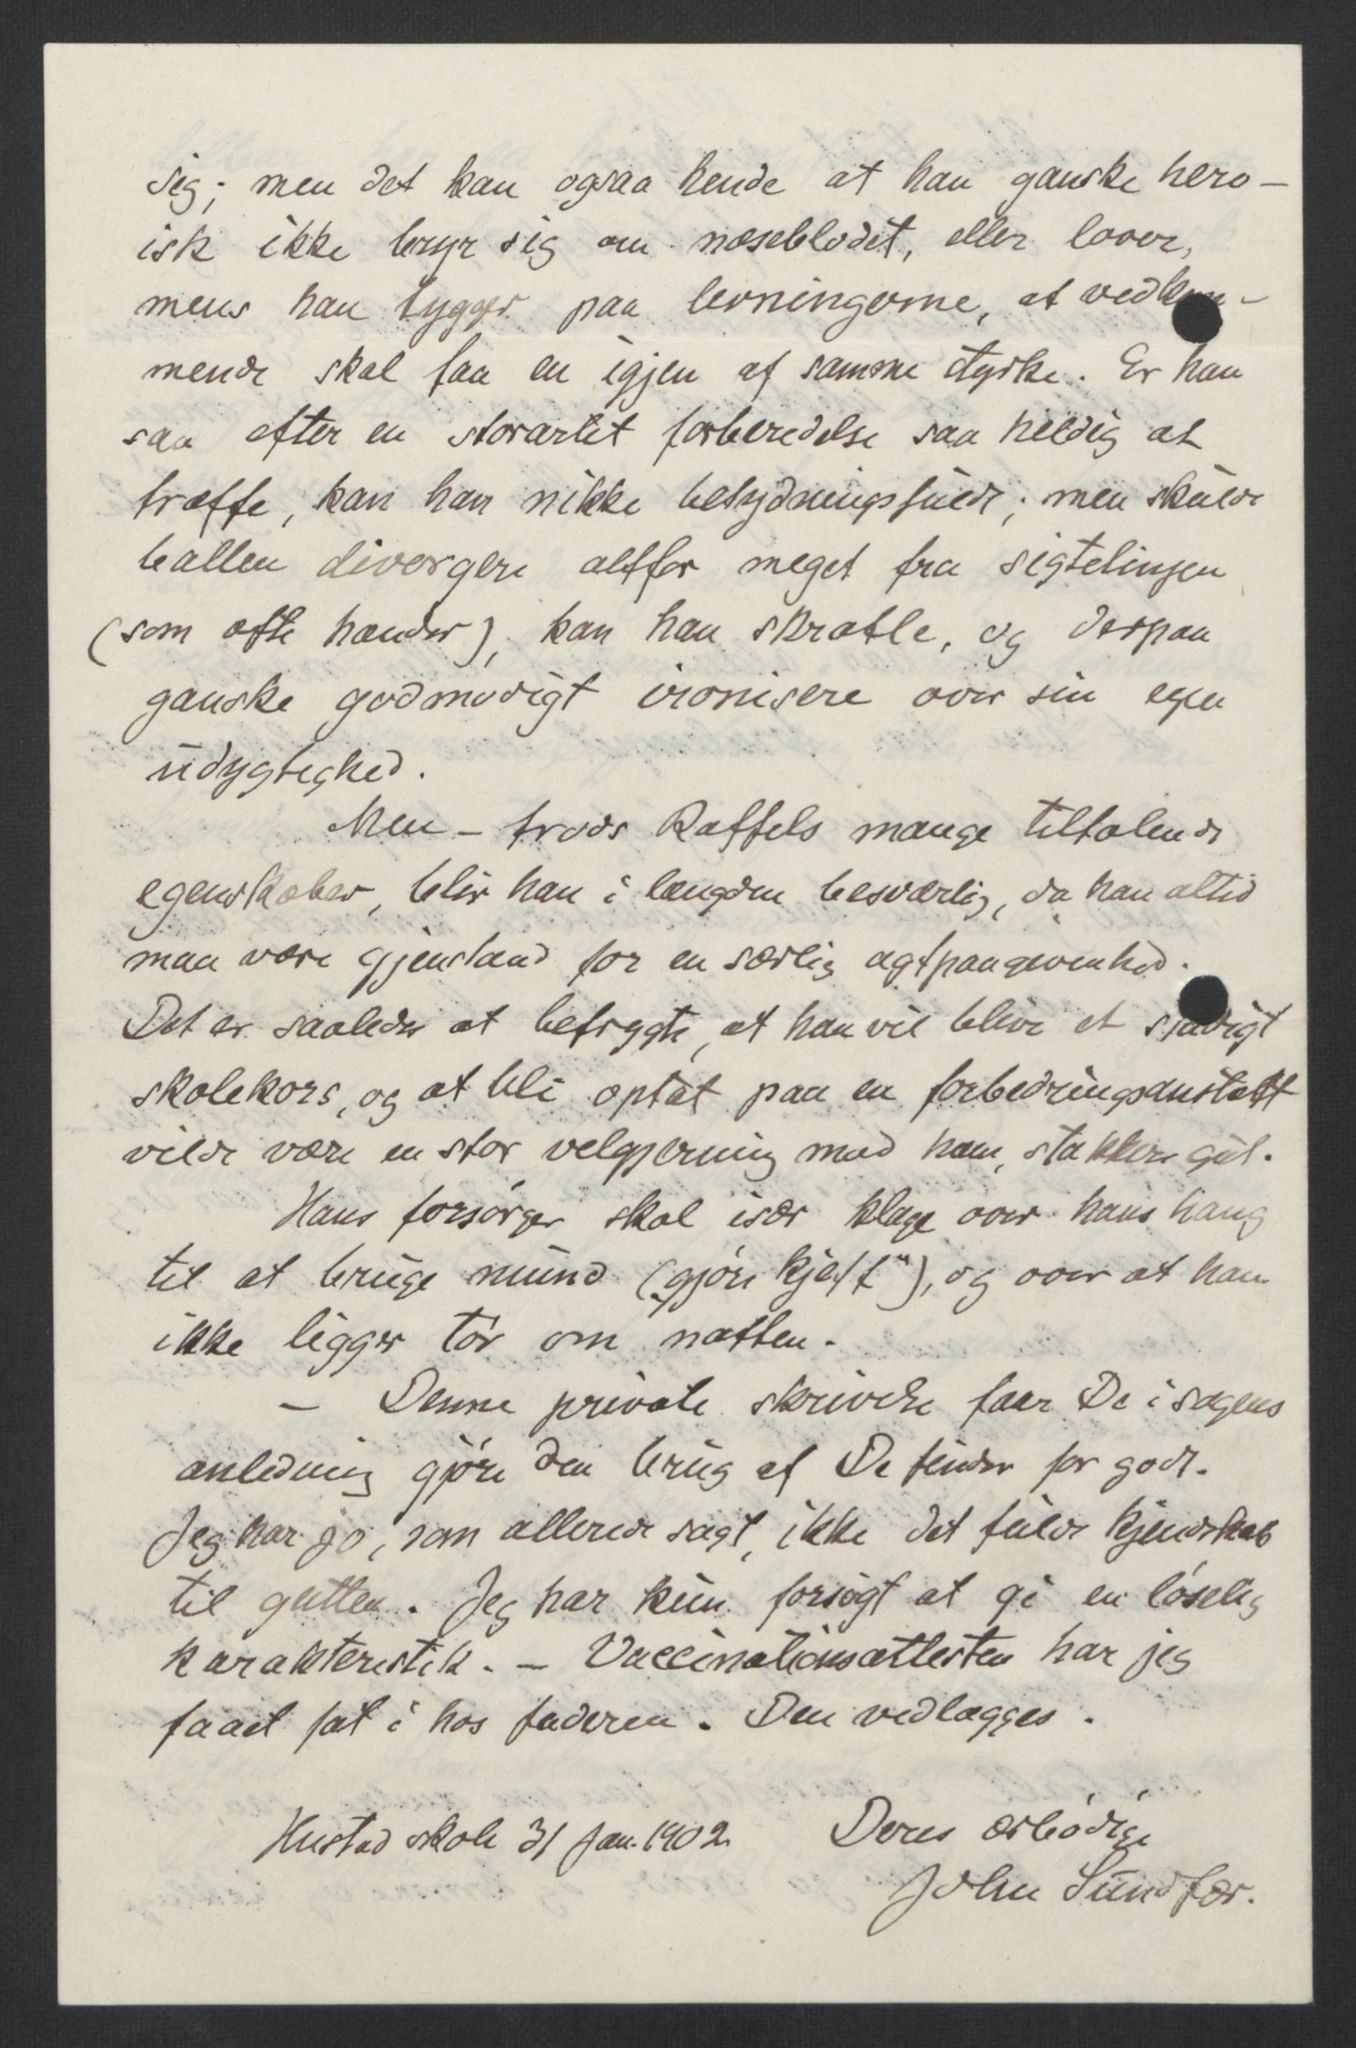 sig; men det kan ogsaa hende at han ganske hero-
isk ikke bryr sig om næseblodet, eller lover,
mens han tygger paa levningerne, at vedkom-
mende skal faa en igjen af samme styrke. Er han
saa efter en storartet forberedelse saa heldig at
træffe, kan han nikke betydningsfuldt; men skulde
ballen divergere altfor meget fra sigtelinjen
(som ofte hænder), kan han skratle, og derpaa
ganske godmodigt ironisere over sin egen
udygtighed.
Men – trods Raffels mange tiltalende
egenskaber, blir han i længden besværlig, da han altid
maa være gjenstand for en særlig agtpaagivenhed.
Det er saaledes at befrygte, at han vil blive et stadigt
skolekors, og at bli optat paa en forbedringsanstalt
vilde være en stor velgjerning mod ham, stakkers gut.
Hans forsørger skal især klage over hans hang
til at bruge mund („gjøre kjæft"), og over at han
ikke ligger tør om natten.
– Denne private skrivelse faar De i sagens
anledning gjøre den brug af De finder for godt.
Jeg har jo, som allerede sagt, ikke det fulde kjendskab
til gutten. Jeg har kun forsøgt at gi en løselig
karakteristik. – Vaccinationsattesten har jeg
faaet fat i hos faderen. Den vedlægges.
Hustad skole 31 Jan. 1902. Deres ærbødige
John Sundfær.